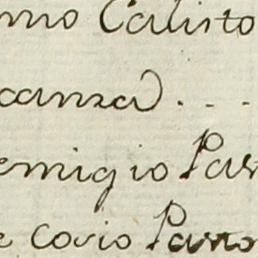 mo Calisto
canza) . . .
emigio Par
e Cosio Parro